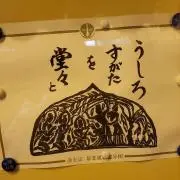 うしろ
すがた
を
堂々と